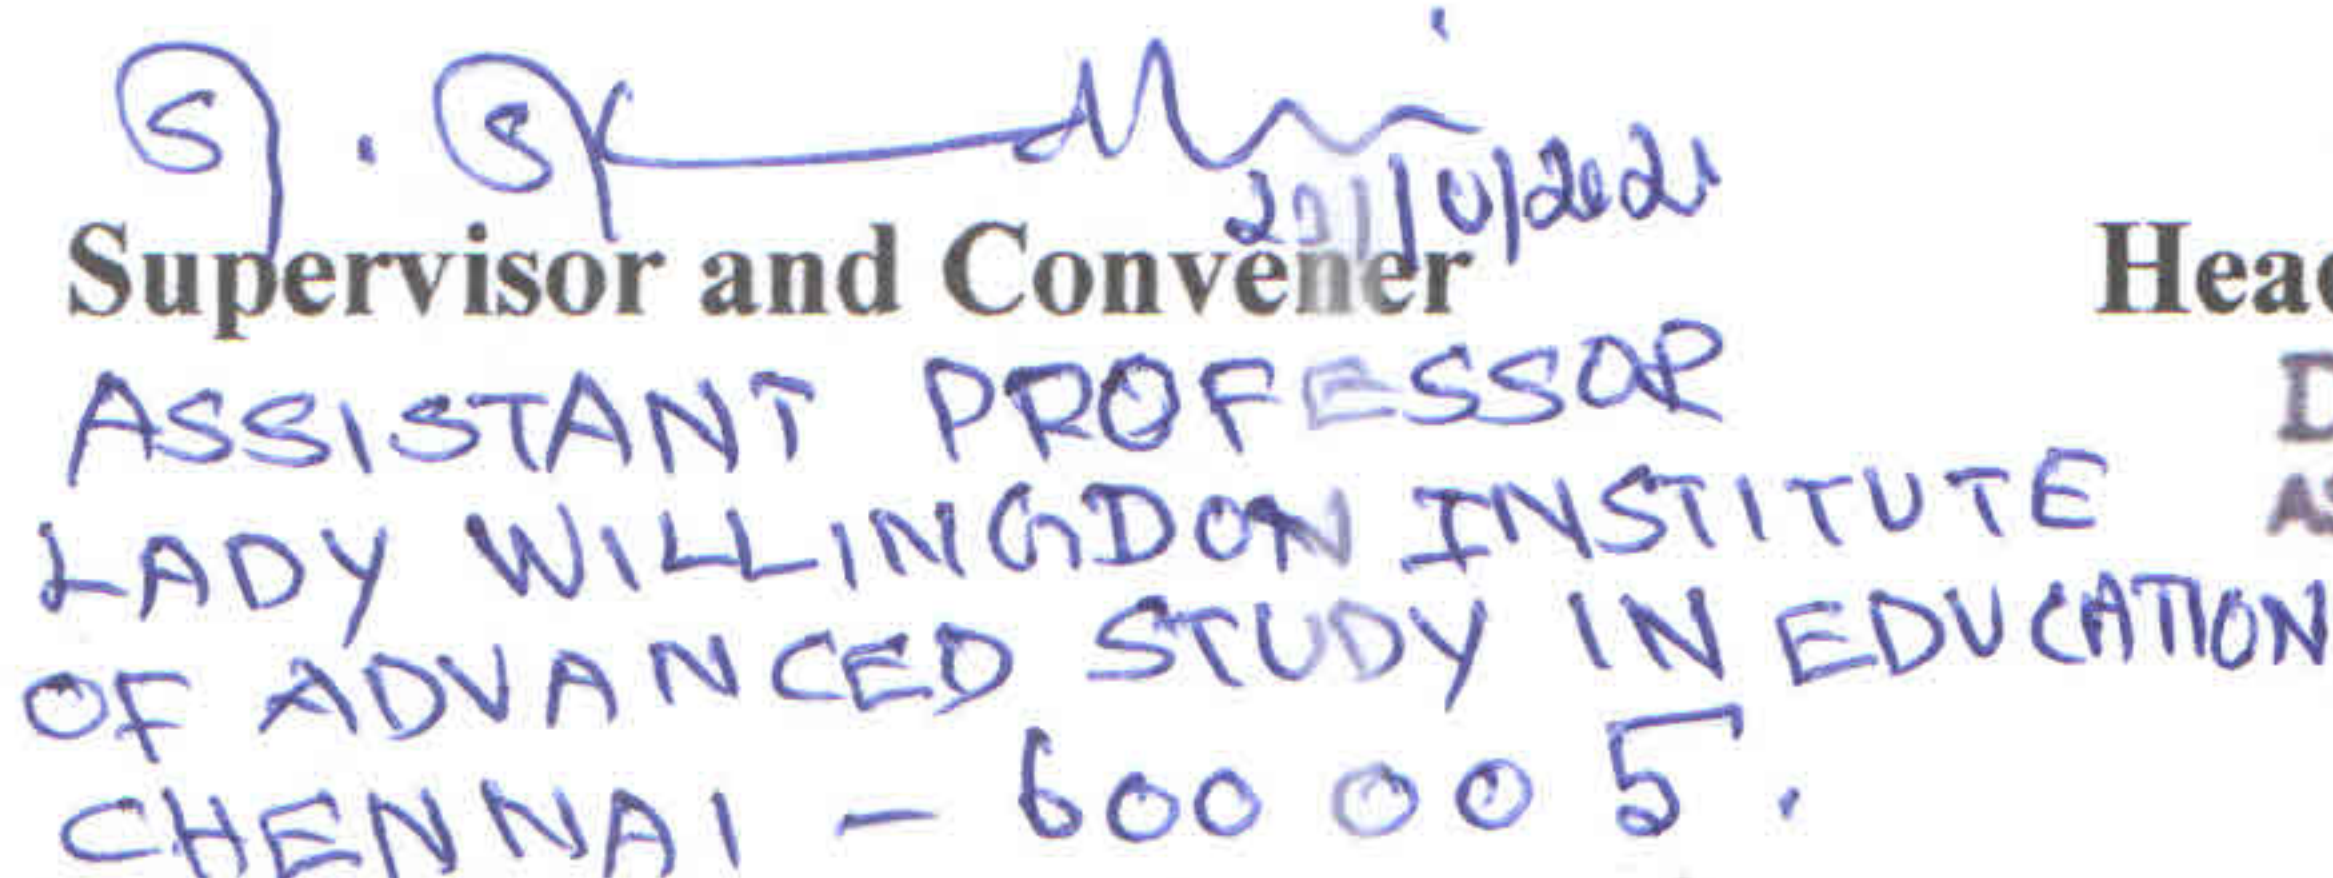 Supervisor and Convener
ASSISTANT PROFESSOR
LADY WILLINGDON INSTITUTE
OF ADVANCED STUDY IN EDUCATION
CHENNAI - 600 005.